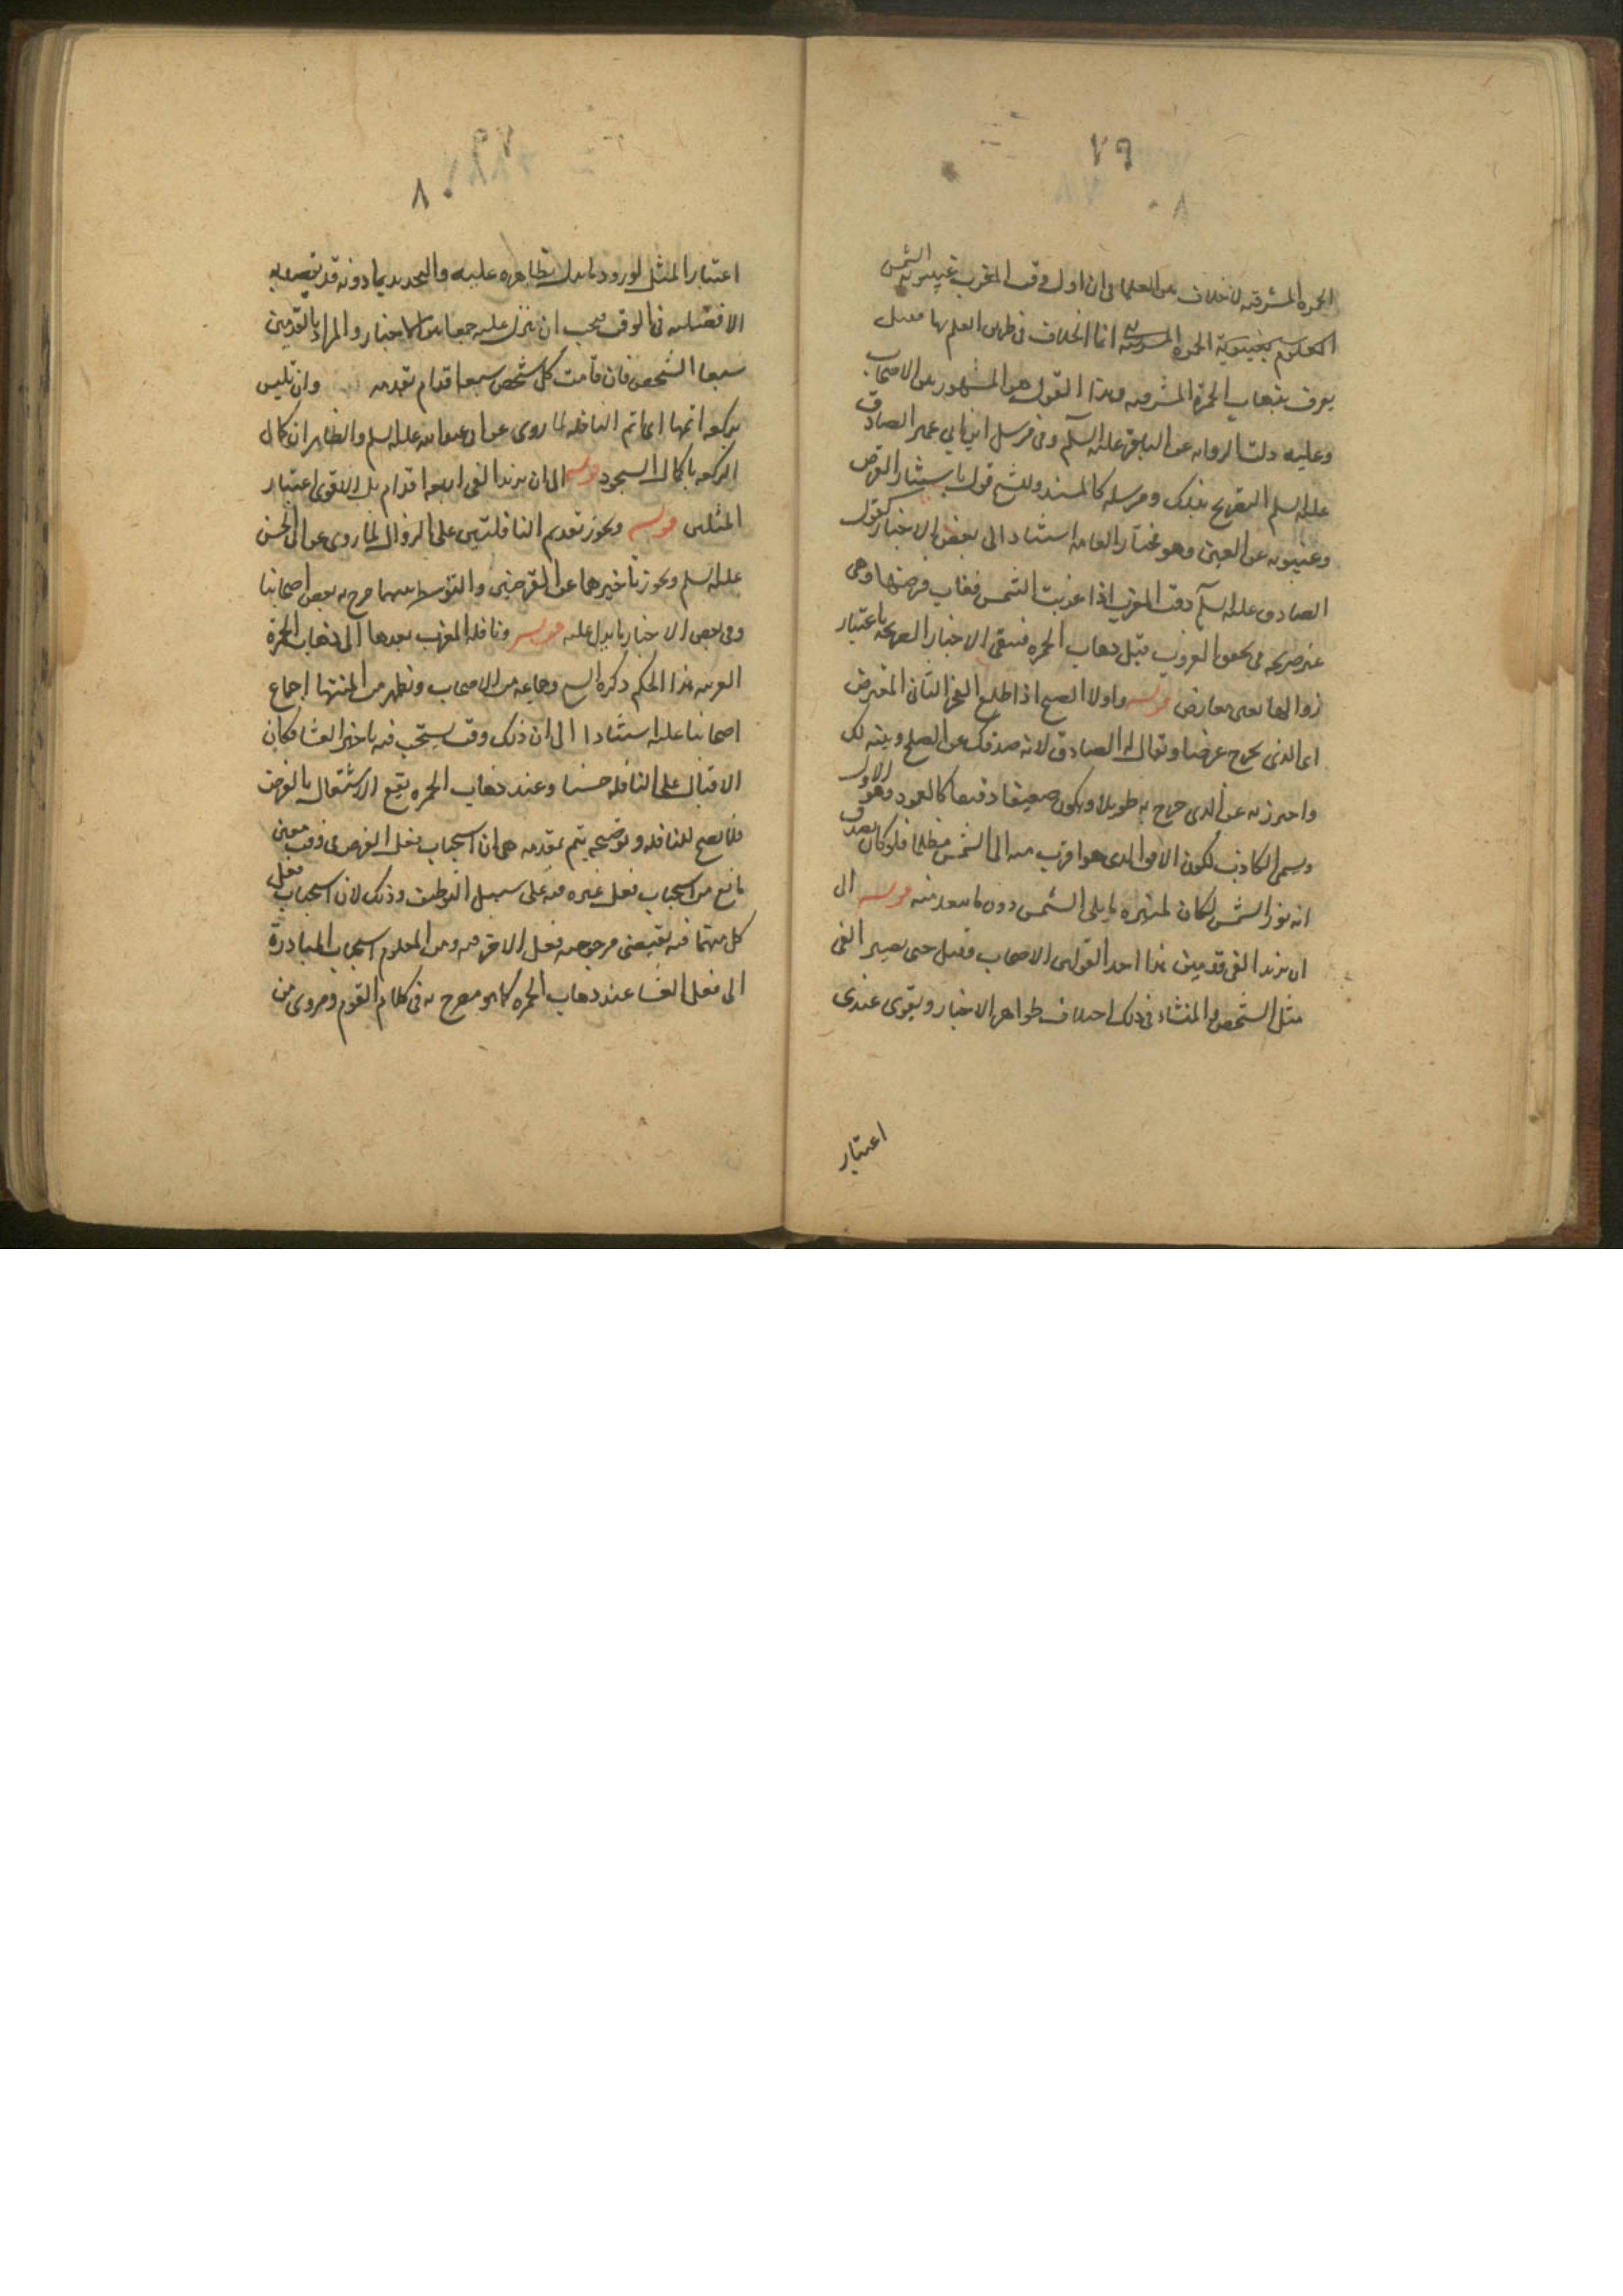 ٧٩
الحمرة المشرقية لا خلاف بين العلما في ان اول وقت المغرب غيبوبة الشمس
المعلوم بغيبوبة الحمرة المشرقية انما الخلاف في طريق العلم بها فقيل
يعرف بذهاب الحمرة المشرقيه وهذا القول هو المشهور بين الاصحاب
وعليه دلت الروايه عن الباقر عليه السلم وفي مرسل ابن ابي عمير الصادق
عليه السلم التصريح بذلك ومرسله كالمسند وللشيخ قول باستتار القرص
وغيبوبه عن العين وهو مختار العامه استنادا الى بعض الاخبار كقول
الصادق عليه السلم وقت المغرب اذا غربت الشمس فغاب قرصها وهى
غير صريحه في تحقق الغروب قبل ذهاب الحمره فتبقى الاخبار الصريحه باعتبار
زوالها بغير معارض قوله واول الصبح اذا طلع الفجر الثاني المعترض
اى الذى يخرج عرضا ويقال له الصادق لانه صدقك عن الصبح وبينه لك
واحترز به عن الذى يخرج طويلا ويكون ضعيفا دقيقا كالعمود وهو الاول
ويسمى الكاذب لكون الافق الذى هو اقرب منه الى الشمس مظلما فلو كان يصدق
انه نور الشمس لكان المنير ما يلى الشمس دون ما يبعد منه قوله الى
ان يزيد الفى قدمين هذا احد القولين للاصحاب وقيل حتى يصير الفى
مثل الشخص والمنشاء في ذلك اختلاف ظواهر الاخبار ويقوى عندى
اعتبار
٨٠
اعتبار المثل لورود ما يدل بظاهره عليه والتحديد بما دونه قد يقصد به
الافضليه في الوقت فيجب ان ينزل عليه جمعا بين الاخبار والمراد بالقدمين
سبعا الشخص فان قامت كل شخص سبعة اقدام بقدمه وان تلبس
بركعه اتمها اى اتم النافله لما روى عن ابى عبد الله عليه السلم والظاهر ان كمال
الركعه باكمال السجود قوله الى ان يزيد الفى اربعه اقدام بل الاقوى اعتبار
المثلين قوله ويجوز تقديم النافلتين على الزوال لما روى عن ابى الحسن
عليه السلم ويجوز تاخيرهما عن الفرضين والتوسط بينهما صرح به بعض اصحابنا
وفي بعض الاخبار ما يدل عليه قوله ونافله المغرب بعدها الى ذهاب الحمرة
الغربيه هذا الحكم ذكره الشيخ وجماعه من الاصحاب ويظهر من المنتهى اجماع
اصحابنا عليه استنادا الى ان ذلك وقت يستحب فيه تاخير العشا فكان
الاقبال على النافله حسنا وعند ذهاب الحمره يقع الاشتغال بالفرض
فلا يصح للنافله وتوضيحه يتم بمقدمه هى ان استحباب فعل الفرض في وقت معين
مانع من استحباب فعل غيره فيه على سبيل التوظيف وذلك لان استحباب فعل
كل منهما فيه يقتضى مرجوحيه فعل الاخر فيه ومن المعلوم استحباب المبادرة
الى فعل العشا عند ذهاب الحمره كما هو مصرح به في كلام القوم ومروى من